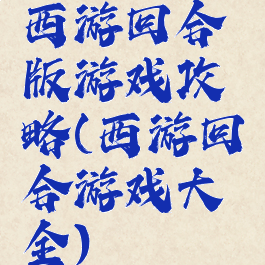 西游回合
版游戏攻
略(西游回
合游戏大
全)